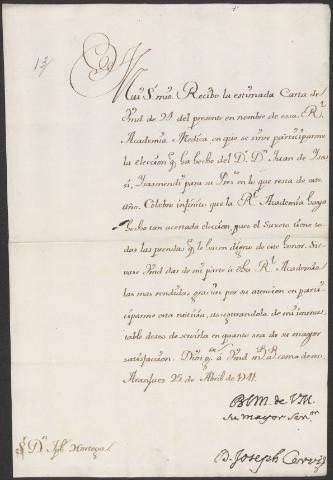 13
Mui S.r mio. Recibo la estimada Carta de
Vmd de 24 del presente en nombre de essa R.l
Academia Medica, en que se sirve participarme
la eleccion q. ha hecho del D. D.n Juan de Isa
si, Isasmendi para su Pres.te en lo que resta de este
año. Celebro infinito que la R.l Academia haya
hecho tan acertada eleccion, pues el Sugeto tiene to
das las prendas q. le hacen digno de este honor. Sir
vase Vmd dar de mi parte à dha R.l Academia
las mas rendidas gracias por su atencion en parti
ciparme esta noticia, assegurandola de mi inmu
table deseo de servirla en quanto sea de su mayor
satisfaccion. Dios g.e à Vmd m.s a.s como deseo
Aranjuez 25 de Abril de 1741.
BLM de VM.
su mayor Ser.or
D. Joseph Cervi
S.r D.n Jph. Hortega.